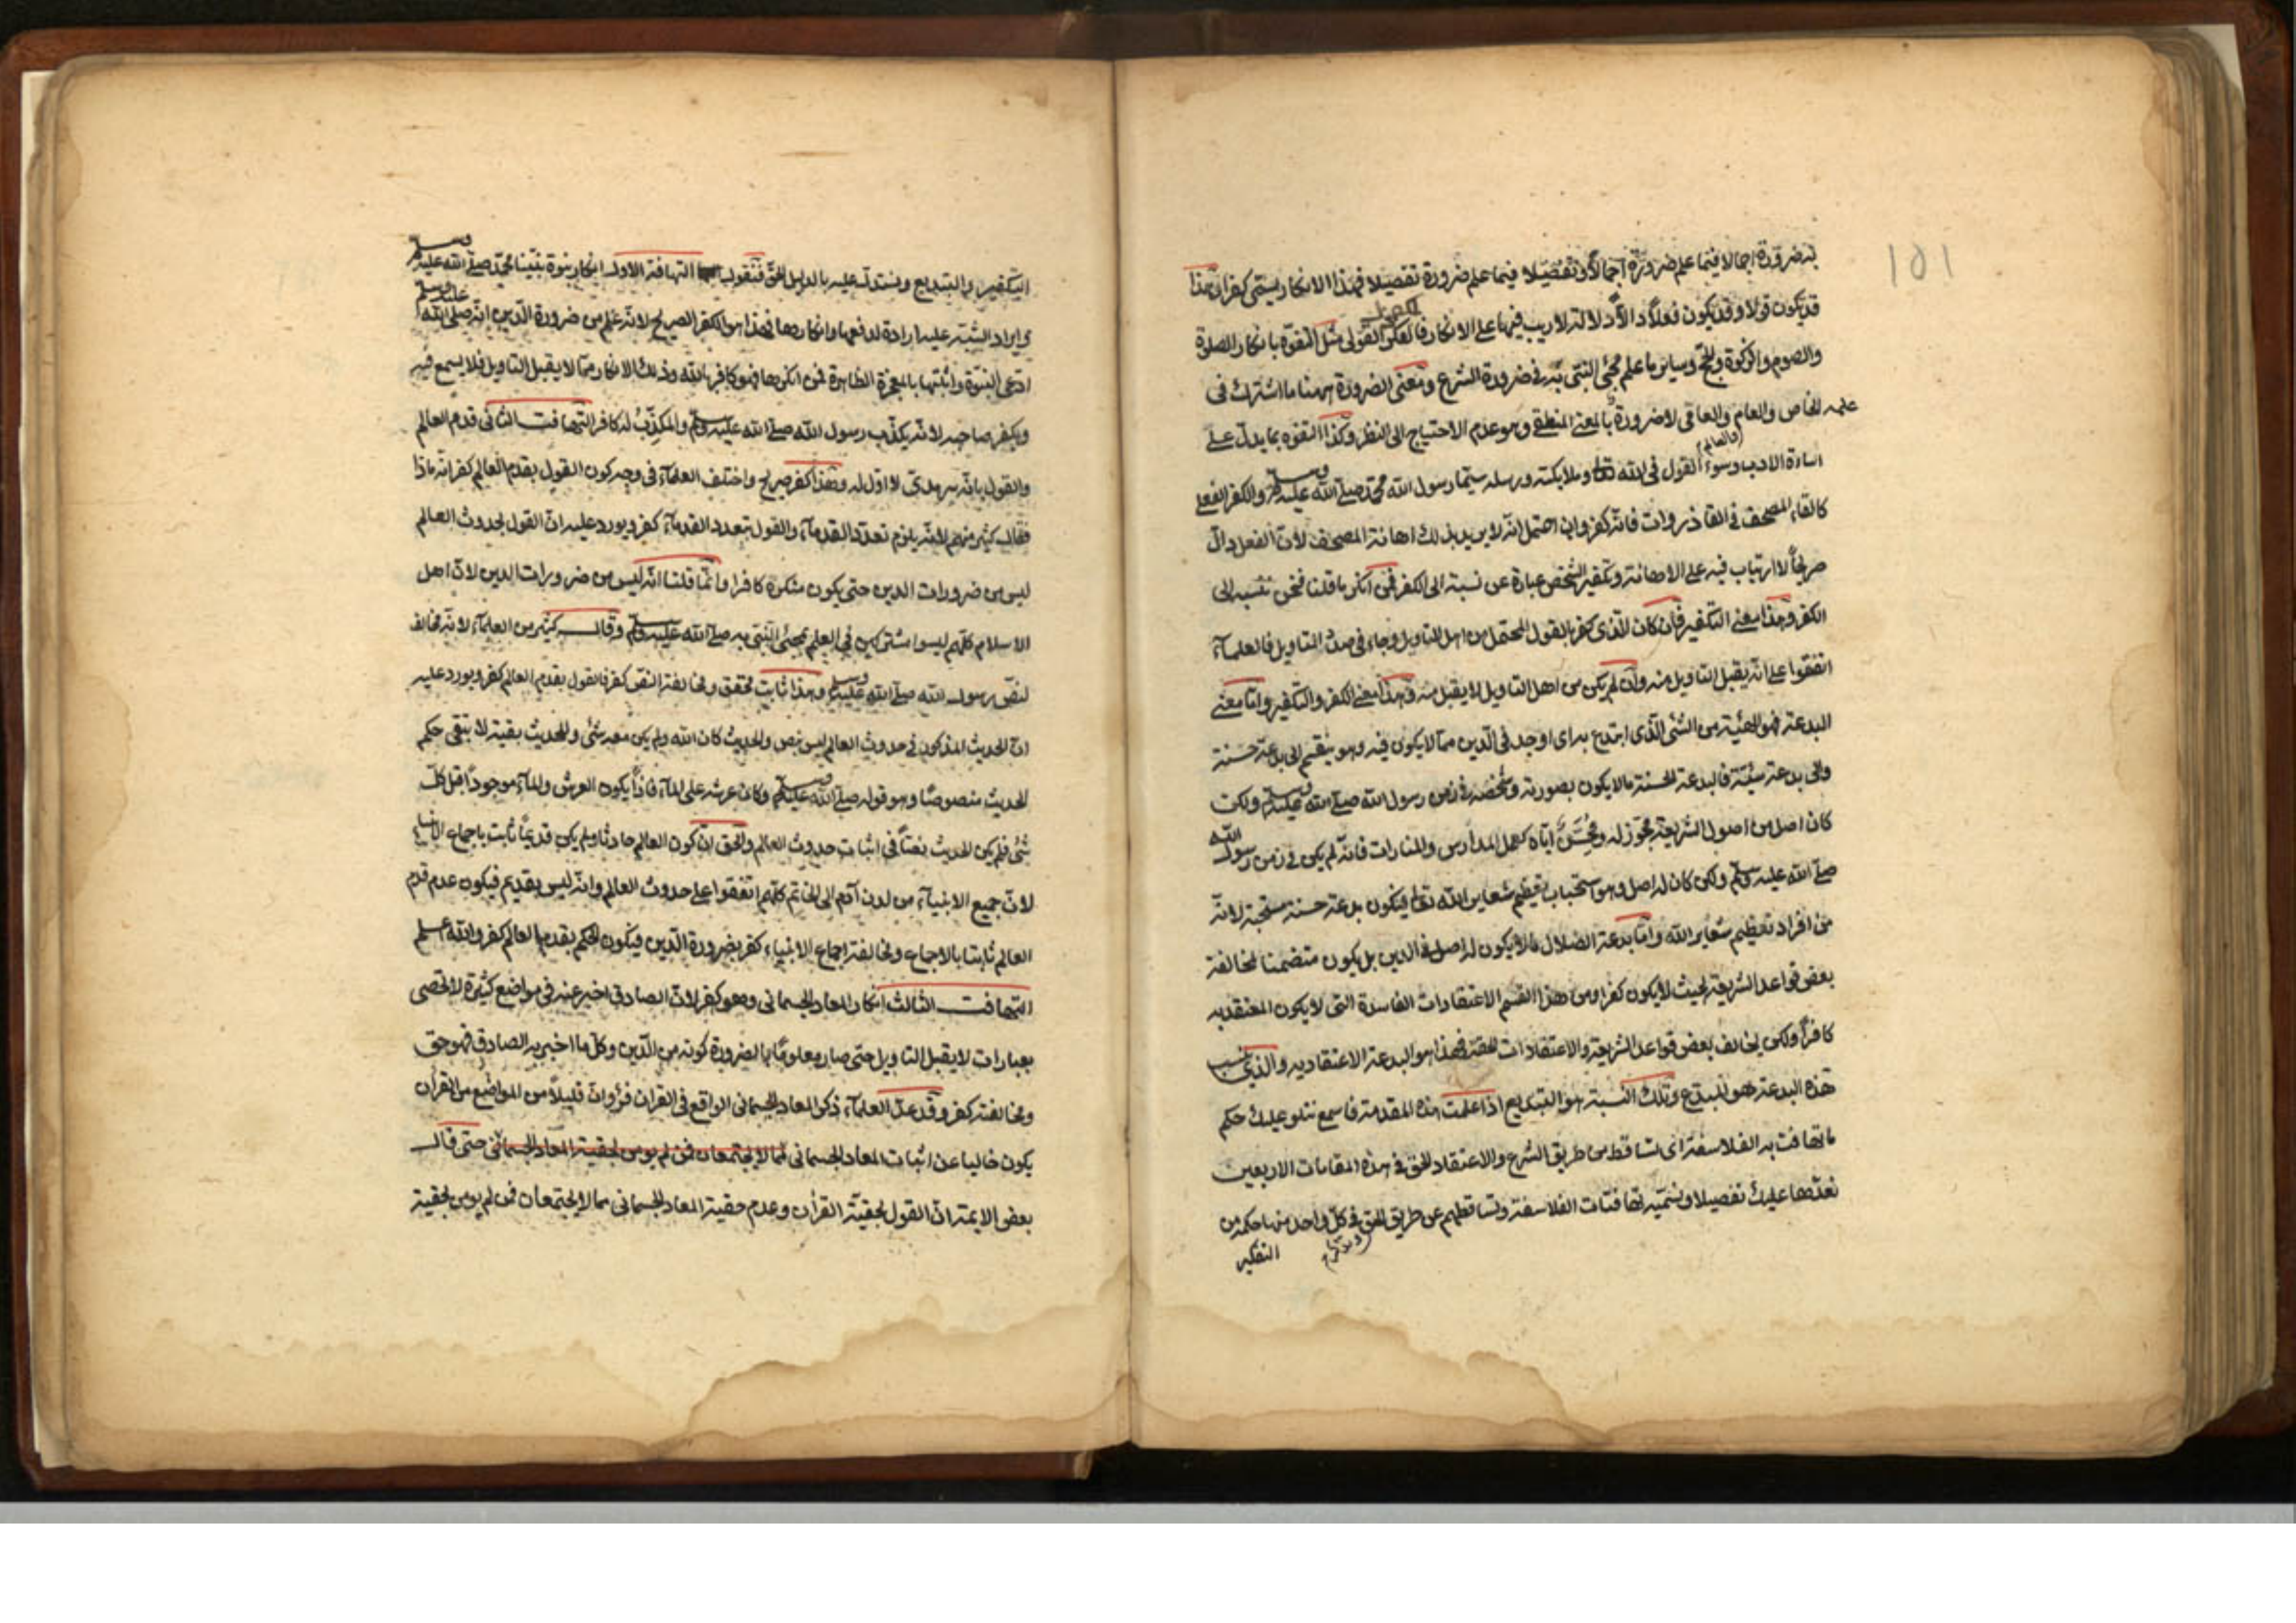 ١٥١
به ضرورة اجمالا فيما علم ضرورة اجمالا وتفصيلا فيما علم ضرورة تفصيلا فهذا الانكار يسمى كفرا ثم هذا
قد يكون قولا وقد يكون فعلا دالا دلالة لا ريب فيها على الانكار فالكفر القولى مثل التفوه بانكار الصلوة
والصوم والزكوة والحج وساير ما علم مجئ النبى به فى ضرورة الشرع ومعنى الضرورة ههنا ما اشترك فى
علمه الخاص والعام والعاقى لا ضرورة بالمعنى المنطقى وهو عدم الاحتياج الى النظر وكذا التفوه بما يدل على
اساءة الادب وسوء القول فى الله تعا وملايكته ورسله سيما رسول الله محمد صلى الله عليه وسلم والكفر الفعلى
كالقاء المصحف فى القاذورات فانه كفر وان احتمل انه لا يريد بذلك اهانة المصحف لان الفعل دال
صريحا لا ارتياب فيه على الاهانة وتكفير الشخص عبارة عن نسبة الى الكفر فمن انكر ما قلنا فنحن ننسبه الى
الكفر وهذا معنى التكفير فان كان الذى كفر بالقول المحتمل من اهل التاويل وجاء فى صدد التاويل فالعلمآء
اتفقوا على انه يقبل التاويل منه وان لم يكن من اهل التاويل لا يقبل منه فهذا معنى الكفر والتكفير واما معنى
البدعة فهو الهيئة من الشئ الذى ابتدع به اى اوجد فى الدين مما لا يكون فيه وهو ينقسم الى بدعة حسنة
والى بدعة سيئة فالبدعة الحسنة ما لا يكون بصورته وشخصه فى زمن رسول الله صلى الله عليه وسلم ولكن
كان اصل من اصول الشريعة مجوز له ومحسن اياه كعمل المدارس والمنارات فانه لم يكن فى زمن رسول الله
صلى الله عليه وسلم ولكن كان له اصل وهو استحباب تعظيم شعاير الله تعا فيكون بدعة حسنة مستحبة لانه
من افراد تعظيم شعاير الله واما بدعة الضلال ما لا يكون له اصل فى الدين بل يكون متضمنا لمخالفة
بعض قواعد الشريعة بحيث لا يكون كفرا ومن هذا القسم الاعتقادات الفاسدة التى لا يكون المعتقد به
كافرا ولكن يخالف بعض قواعد الشريعة والاعتقادات الحقة فهذا هو البدعة الاعتقاديه والذى ينسب
هذه البدعة هو المبتدع وتلك النسبة هو التبديع اذا علمت هذه المقدمة فاسمع نتلو عليك حكم
ما تهافت به الفلاسفة اى تساقط من طريق الشرع والاعتقاد الحق فى هذه المقامات الاربعين
نعدها عليك تفصيلا ونسميه تهافتات الفلاسفة وتساقطهم عن طريق الحق فى كل واحد منها حكمه من
التفكير
التكفير والتبديع ونستدل عليه بالدليل الحق فنقول التهافت الاول انكار نبوة نبينا محمد صلى الله عليه وسلم
وايراد الشبه عليه ارادة لدفعها وانكارها فهذا هو الكفر الصريح لانه علم من ضرورة الدين انه صلى الله عليه وسلم
ادعى النبوة واثبتها بالمعجزة الظاهرة فمن انكرها فهو كافر بالله وذلك الانكار مما لا يقبل التاويل فلا يسمع فيه
ويكفر صاحبه لانه يكذب رسول الله صلى الله عليه وسلم والمكذب له كافر التهافت الثانى قدم العالم
والقول بانه سرمدى لا اول له وهذا كفر صريح واختلف العلمآء فى وجه كون القول بقدم العالم كفرا انه ماذا
فقال كثير منهم لانه يلزم تعدد القدمآء والقول بتعدد القدمآء كفر ويورد عليه ان القول بحدوث العالم
ليس من ضرورات الدين حتى يكون منكره كافرا وانما قلنا انه ليس من ضرورات الدين لان اهل
الاسلام كلهم ليسوا مشتركين فى العلم بمجئ النبى به صلى الله عليه وسلم وقال كثير من العلمآء لانه مخالف
لنص رسول الله صلى الله عليه وسلم وهذا ثابت محقق ومخالفة النص كفر فالقول بقدم العالم كفر ويورد عليه
ان الحديث المذكور فى حدوث العالم ليس بنص والحديث كان الله ولم يكن معه شئ وللحديث بقية لا تبقى حكم
الحديث منصوصا وهو قوله صلى الله عليه وسلم وكان عرشه على المآء فاذا يكون العرش والمآء موجودا قبل كل
شئ فلم يكن الحديث نصا فى اثبات حدوث العالم والحق ان كون العالم حادثا ولم يكن قديما ثابت باجماع الانبياء
لان جميع الانبيآء من لدن آدم الى الخاتم كلهم اتفقوا على حدوث العالم وانه ليس بقديم فيكون عدم قدم
العالم ثابتا بالاجماع ومخالفة اجماع الانبياء كفر بضرورة الدين فيكون الحكم بقدم العالم كفر والله اعلم
التهافت الثالث انكار المعاد الجسمانى وهو كفر لان الصادق اخبر عنه فى مواضع كثيرة لا تحصى
بعبارات لا يقبل التاويل حتى صار معلوما بالضرورة كونه من الدين وكل ما اخبر به الصادق فهو حق
ومخالفته كفر وقد عد العلمآء ذكر المعاد الجسمانى الواقع فى القران فرأوا ان قليلا من المواضع من القرآن
يكون خاليا عن اثبات المعاد الجسمانى مما لا يجتمعان فمن لم يومن بحقية المعاد الجسمانى حتى قال
بعض الايمة ان القول بحقية القرآن وعدم حقية المعاد الجسمانى مما لا يجتمعان فمن لم يومن بحقية